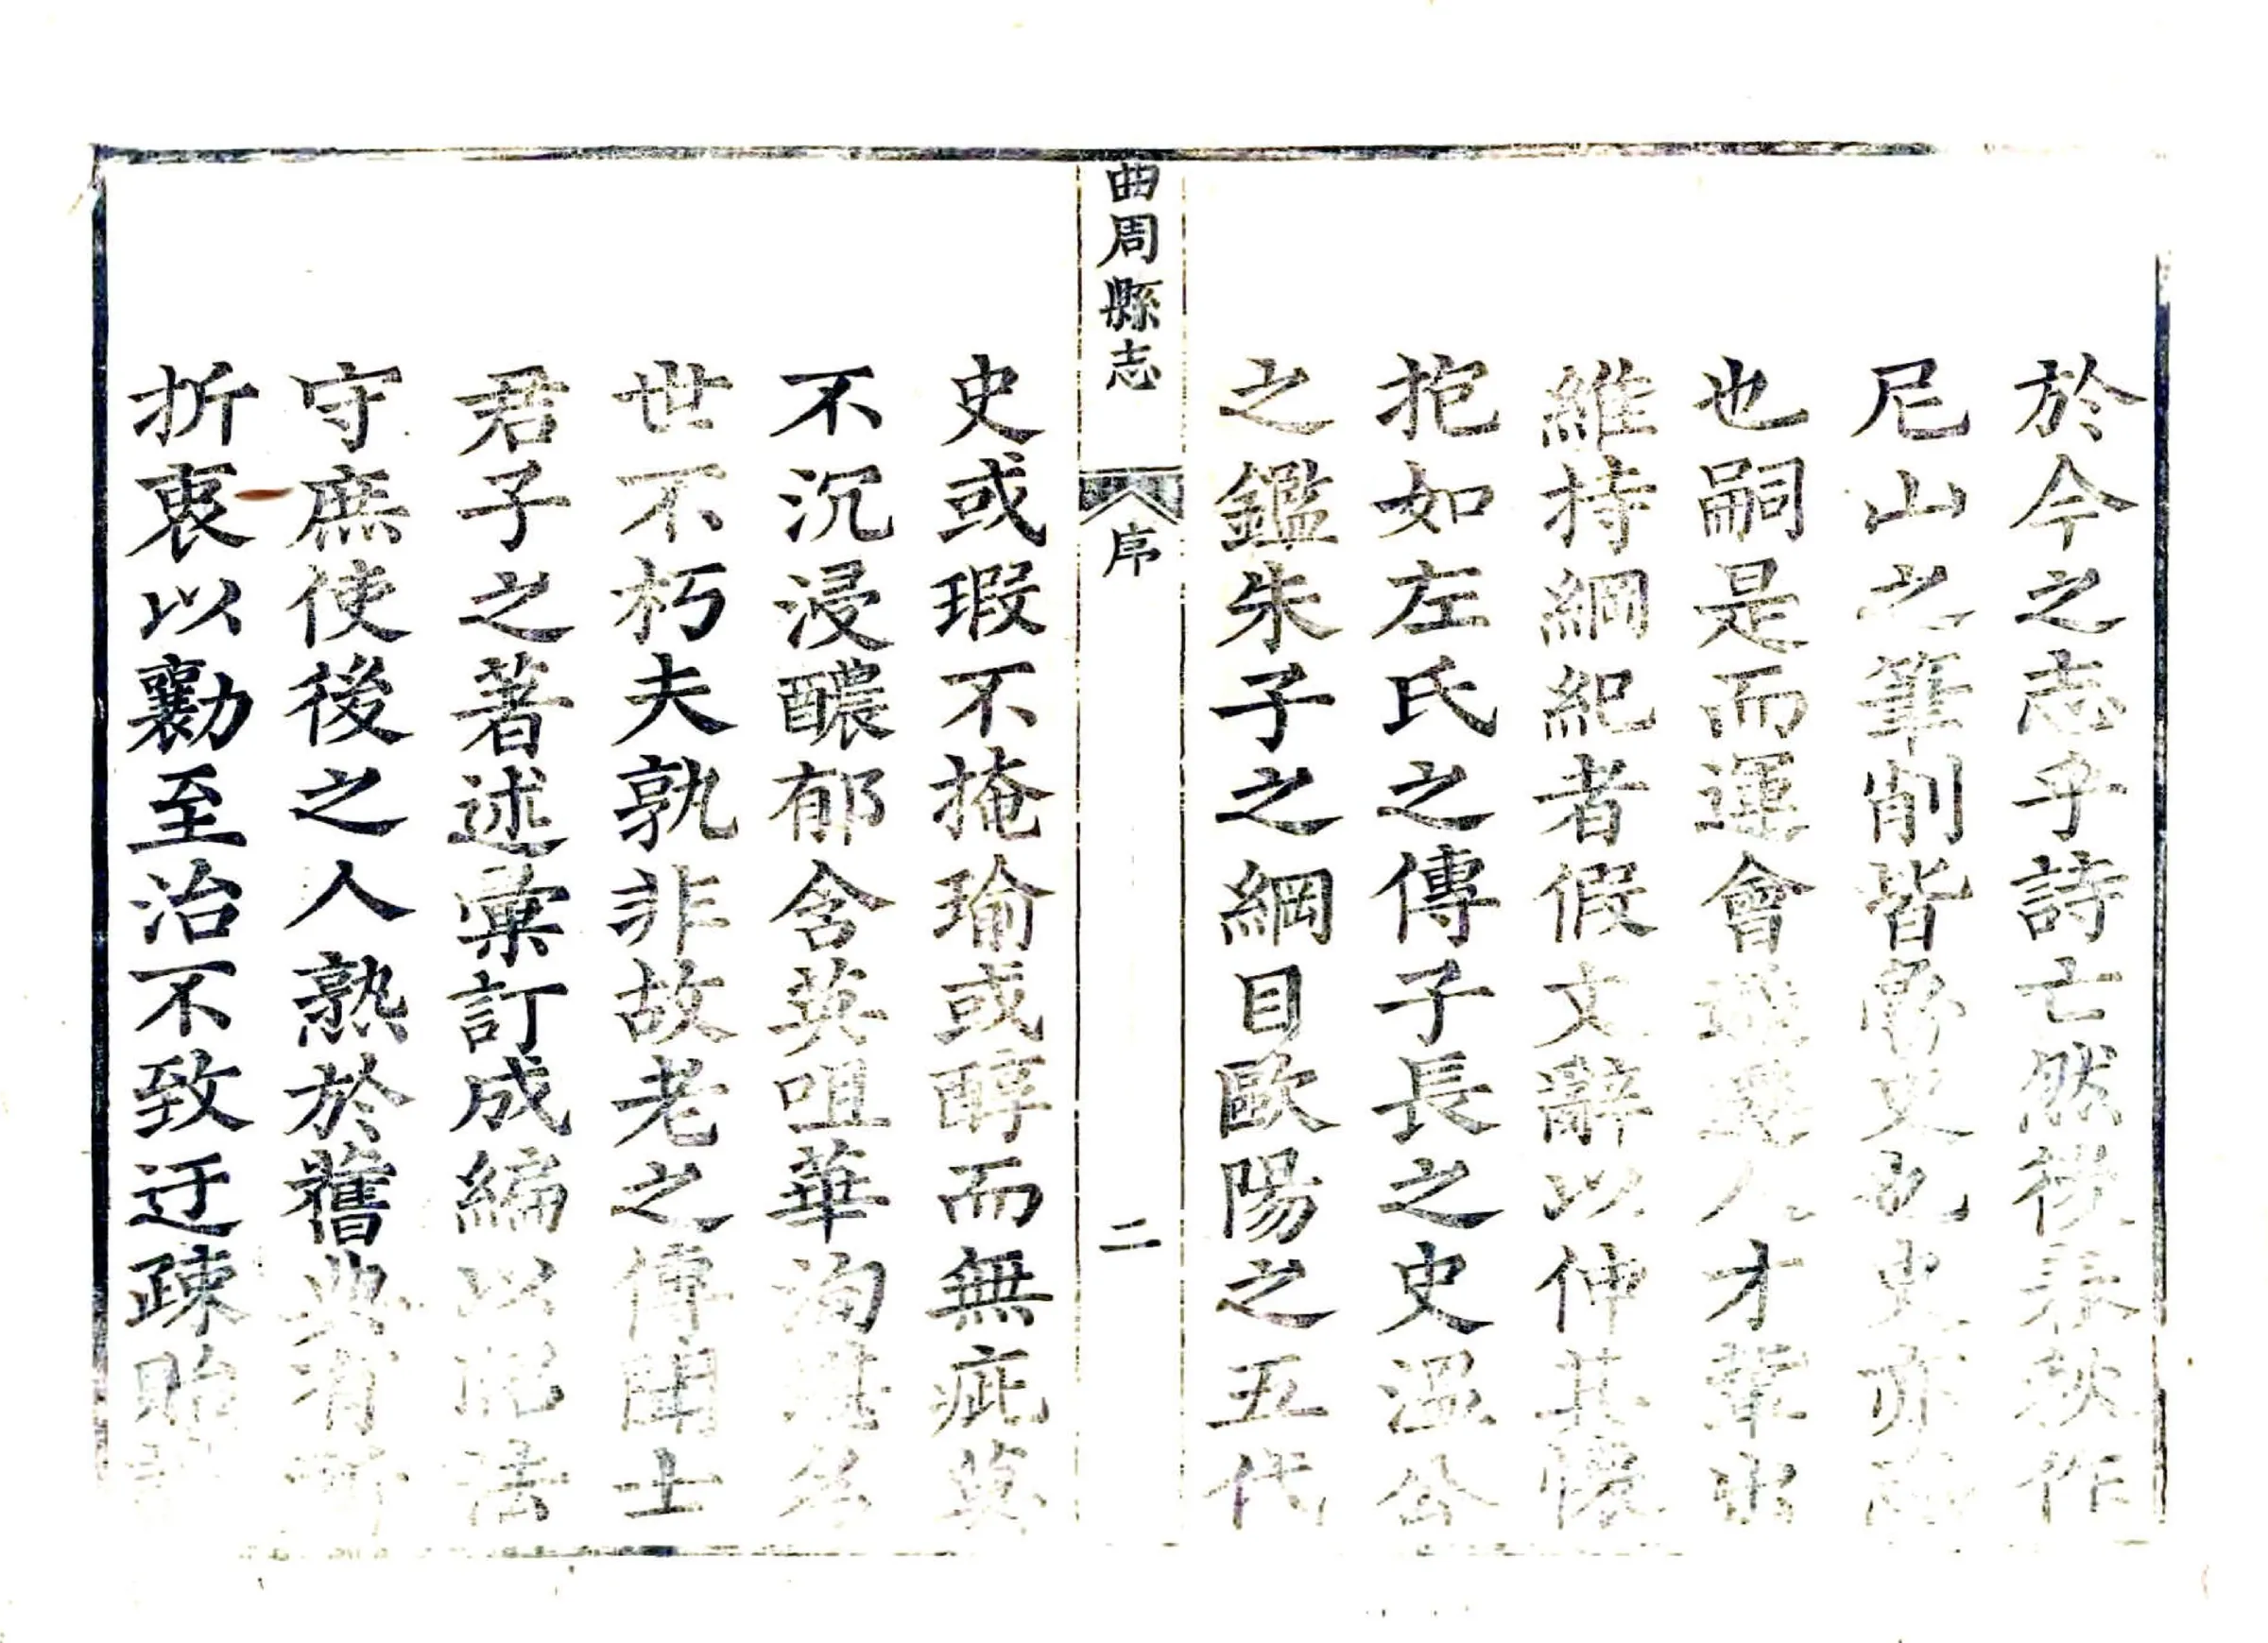 於今之志乎詩亡然後春秋作
尼山之筆削皆魯史也史亦志
也嗣是而運會遞更人才輩出
維持綱紀者假文辭以伸其懷
抱如左氏之傳子長之史温公
之鑑朱子之綱目歐陽之五代
曲周縣志
序
二
史或瑕不掩瑜或醇而無疵莫
不沉浸醲郁含英咀華洵
世不朽夫孰非故老之傳聞士
君子之著述彙訂成編以昭法
守庶使後之人熟於舊典有所
折衷以勷至治不致迂疎貽